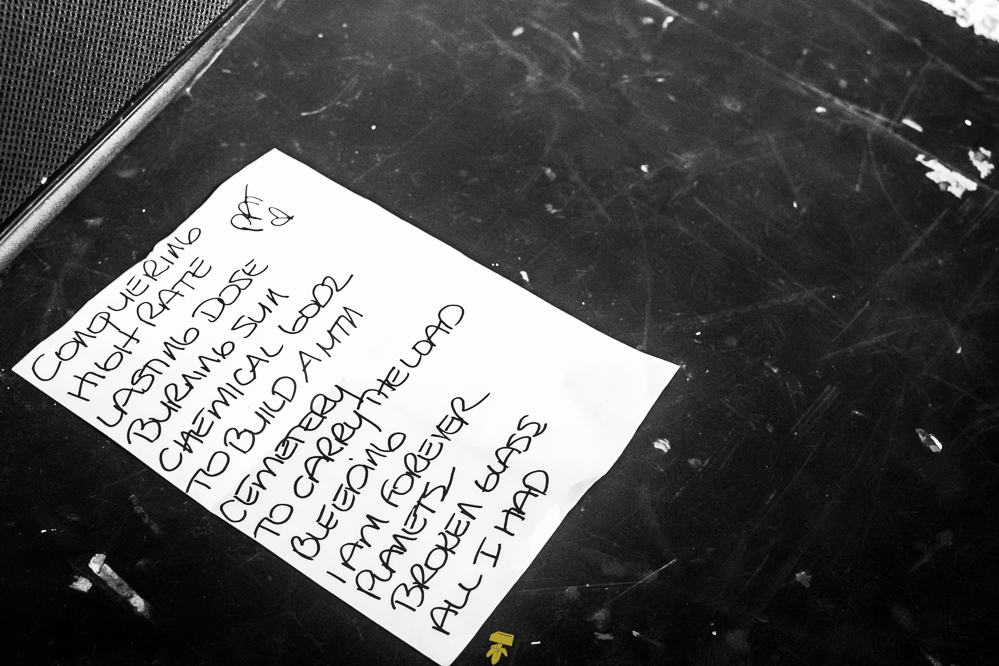 CONQUERING
HIGH RATE
LASTING DOSE
BURNING SUN
CHEMICAL GODZ
TO BUILD A MTN
CEMETERY
TO CARRY THE LOAD
BLEEDING
I AM FOREVER
PLANETS
BROKEN GLASS
ALL I HAD